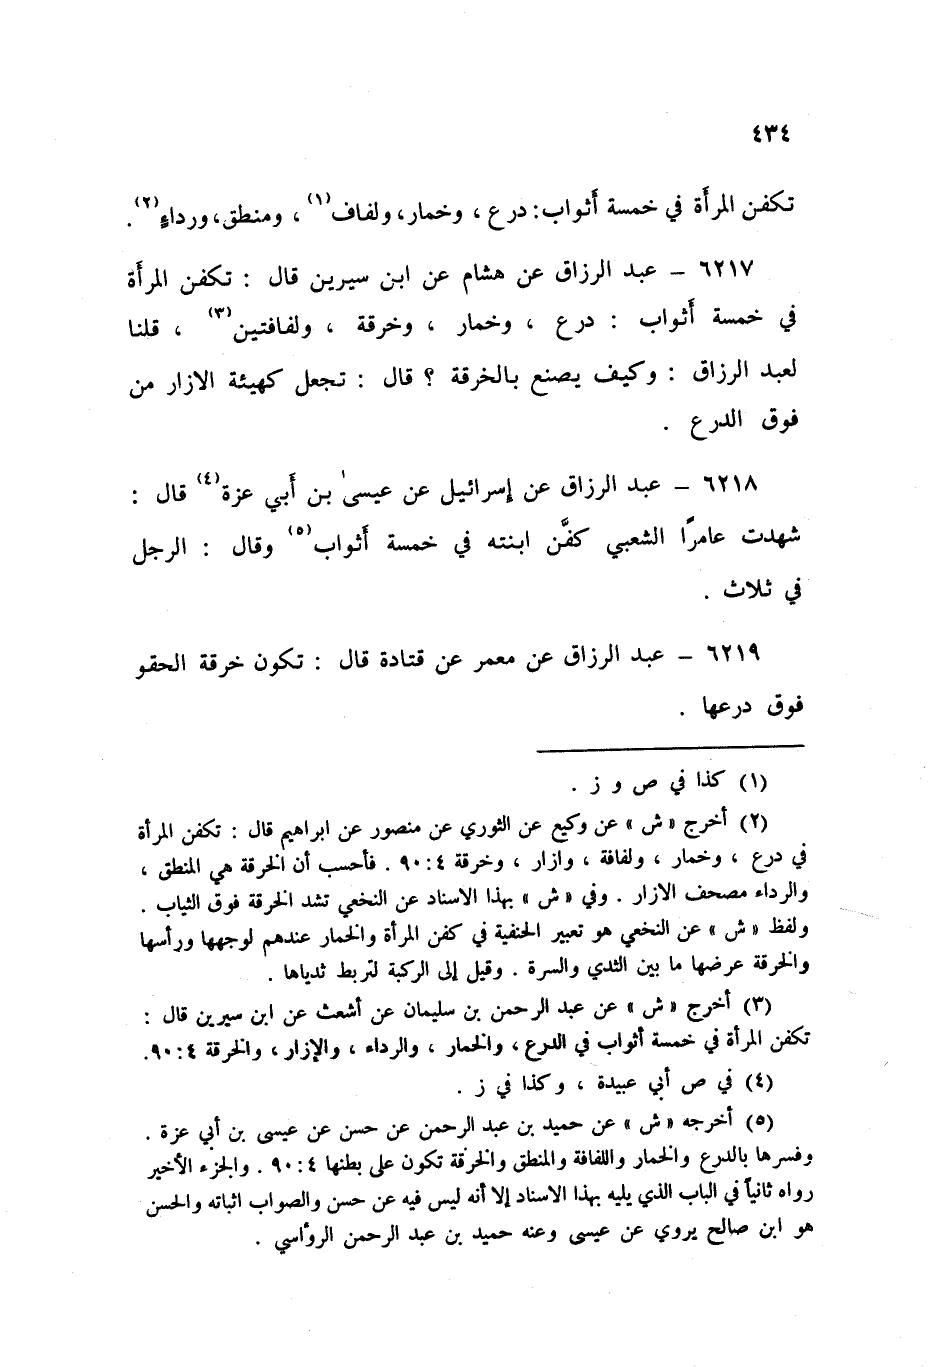 ٤٣٤
تكفن المرأة في خمسة أثواب: درع ، وخمار، ولفاف(١) ، ومنطق، ورداءٍ(٢).
٦٢١٧ – عبد الرزاق عن هشام عن ابن سيرين قال : تكفن المرأة
في خمسة أثواب : درع ، وخمار ، وخرقة ، ولفافتين(٣) ، قلنا
لعبد الرزاق : وكيف يصنع بالخرقة ؟ قال : تجعل كهيئة الازار من
فوق الدرع .
٦٢١٨ – عبد الرزاق عن إسرائيل عن عيسىٰ بن أبي عزة(٤) قال :
شهدت عامرًا الشعبي كفَّن ابنته في خمسة أثواب(٥) وقال : الرجل
في ثلاث .
٦٢١٩ – عبد الرزاق عن معمر عن قتادة قال : تكون خرقة الحقو
فوق درعها .
(١) كذا في ص و ز .
(٢) أخرج « ش » عن وكيع عن الثوري عن منصور عن ابراهيم قال : تكفن المرأة
في درع ، وخمار ، ولفافة ، وازار ، وخرقة ٤ : ٩٠ . فأحسب أن الخرقة هي المنطق ،
والرداء مصحف الازار . وفي « ش » بهذا الاسناد عن النخعي تشد الخرقة فوق الثياب .
ولفظ « ش » عن النخعي هو تعبير الحنفية في كفن المرأة والخمار عندهم لوجهها ورأسها
والخرقة عرضها ما بين الثدي والسرة . وقيل إلى الركبة لتربط ثدياها .
(٣) أخرج « ش » عن عبد الرحمن بن سليمان عن أشعث عن ابن سيرين قال :
تكفن المرأة في خمسة أثواب في الدرع ، والخمار ، والرداء ، والإزار ، والخرقة ٤ : ٩٠.
(٤) في ص أبي عبيدة ، وكذا في ز .
(٥) أخرجه « ش » عن حميد بن عبد الرحمن عن حسن عن عيسى بن أبي عزة .
وفسرها بالدرع والخمار واللفافة والمنطق والخرقة تكون على بطنها ٤ : ٩٠ . والجزء الأخير
رواه ثانياً في الباب الذي يليه بهذا الاسناد إلا أنه ليس فيه عن حسن والصواب اثباته والحسن
هو ابن صالح يروي عن عيسى وعنه حميد بن عبد الرحمن الرؤاسي .